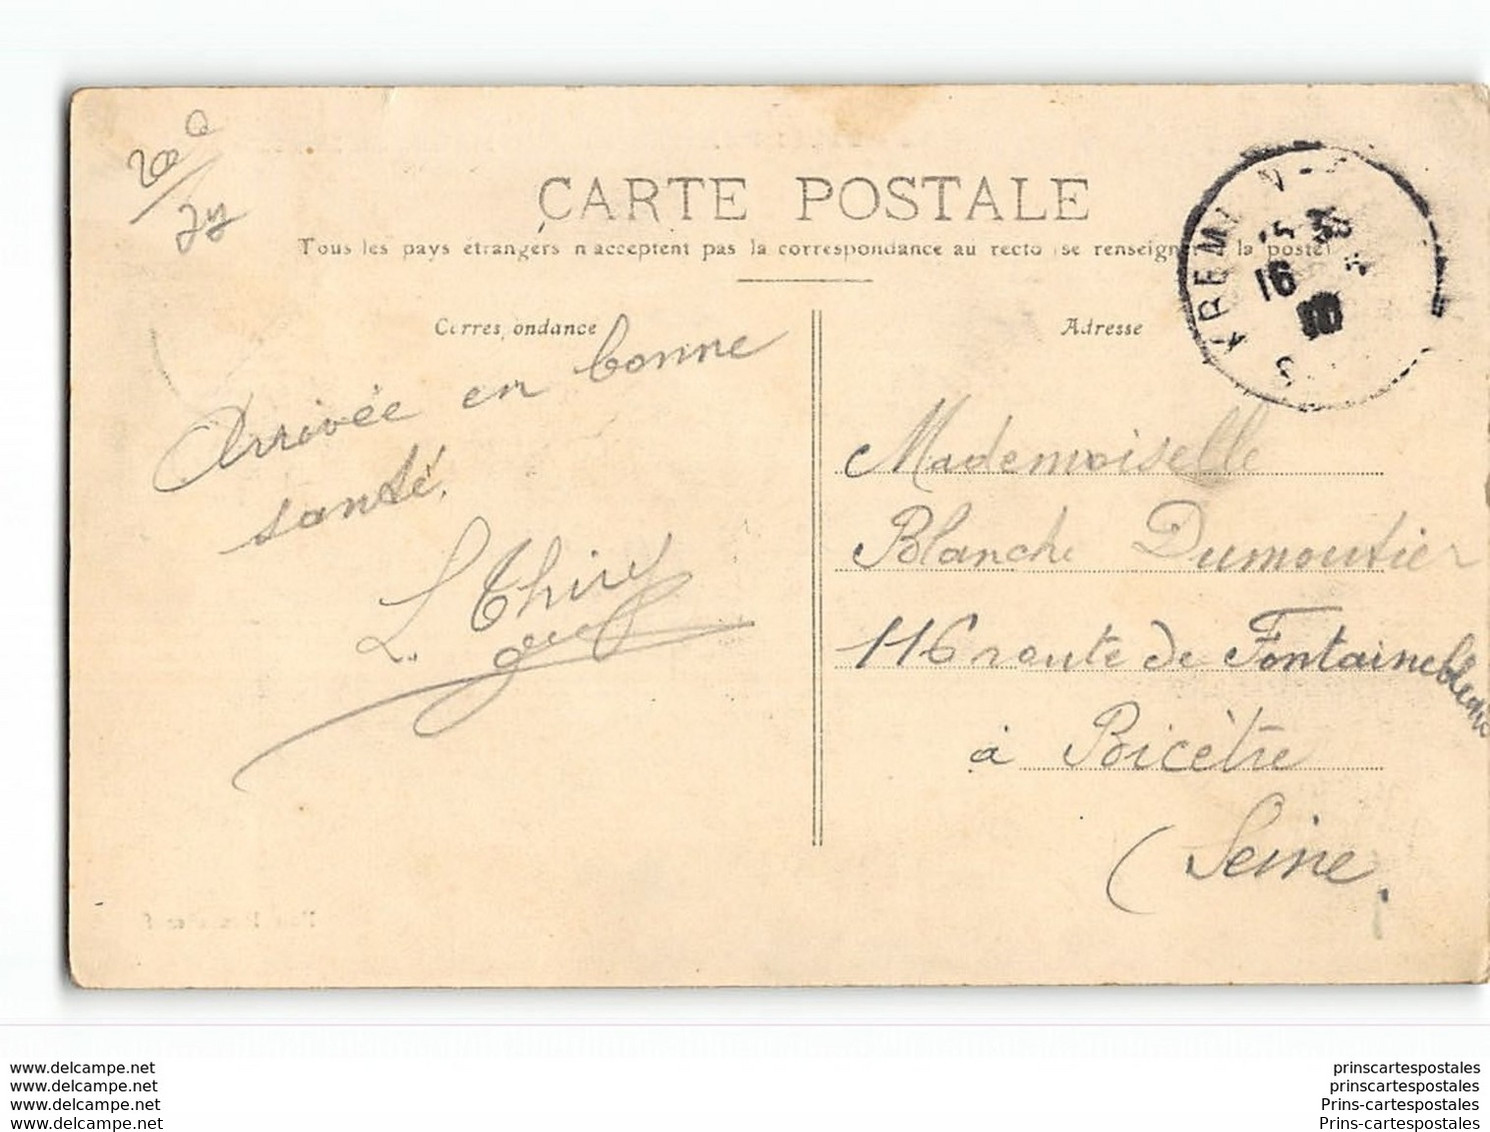 CARTE POSTALE
Tous les pays étrangers n'acceptent pas la correspondance au recto (se renseigner à la poste)
Correspondance
Adresse
KREMLIN
15 30
16
10
Arrivée en bonne
santé.
L. Thiry
Mademoiselle
Blanche Dumoutier
116 route de Fontainebleau
à Bicêtre
(Seine.
www.delcampe.net
www.delcampe.net
www.delcampe.net
www.delcampe.net
prinscartespostales
prinscartespostales
Prins-cartespostales
Prins-cartespostales